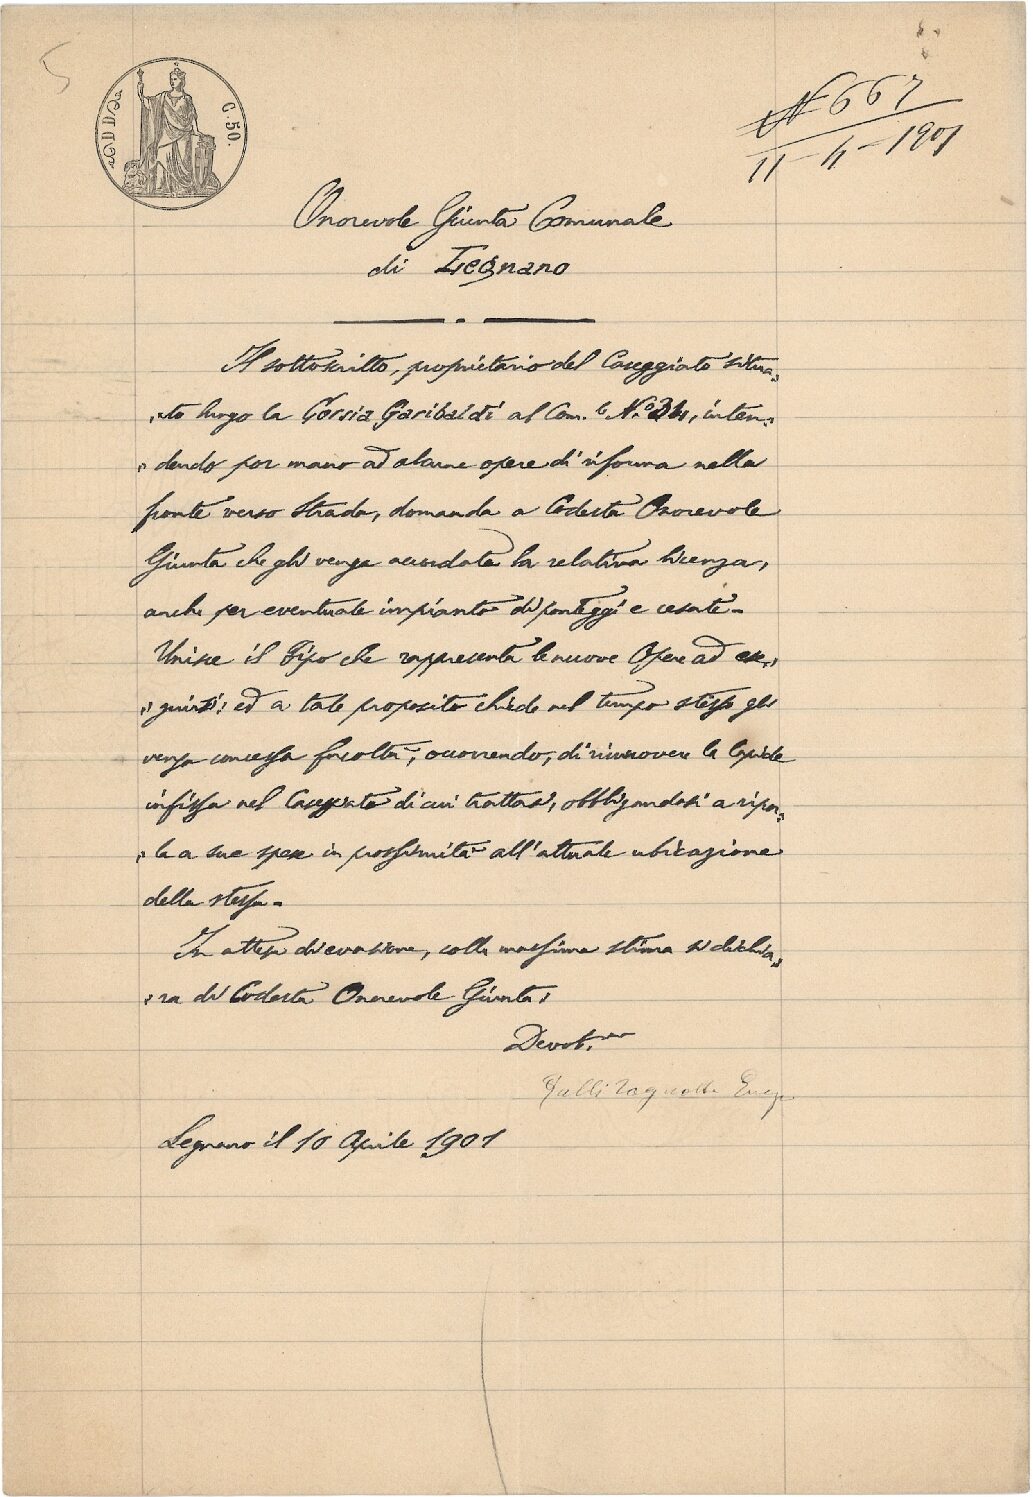 5
C. 50.
N 667
11-4-1901
Onorevole Giunta Comunale
di Legnano
Il sottoscritto, proprietario del Caseggiato situa=
=to lungo la Corsia Garibaldi al Com.e N.o 34, inten=
=dendo por mano ad alcune opere di riforma nella
fronte verso Strada, domanda a Codesta Onorevole
Giunta che gli venga accordata la relativa licenza,
anche per eventuale impianto di ponteggi e cesate.-
Unisce il Tipo che rappresenta le nuove Opere ad ese=
=guirsi: ed a tale proposito chiede nel tempo stesso gli
venga concessa facoltà, occorrendo, di rimuovere la lapide
infissa nel Caseggiato di cui trattasi, obbligandosi a ripor=
=la a sue spese in prossimità all'attuale ubicazione
della stessa.-
In attesa di evasione, colla massima stima si dichia=
=ra di Codesta Onorevole Giunta:
Devot.mo
Legnano il 10 Aprile 1901